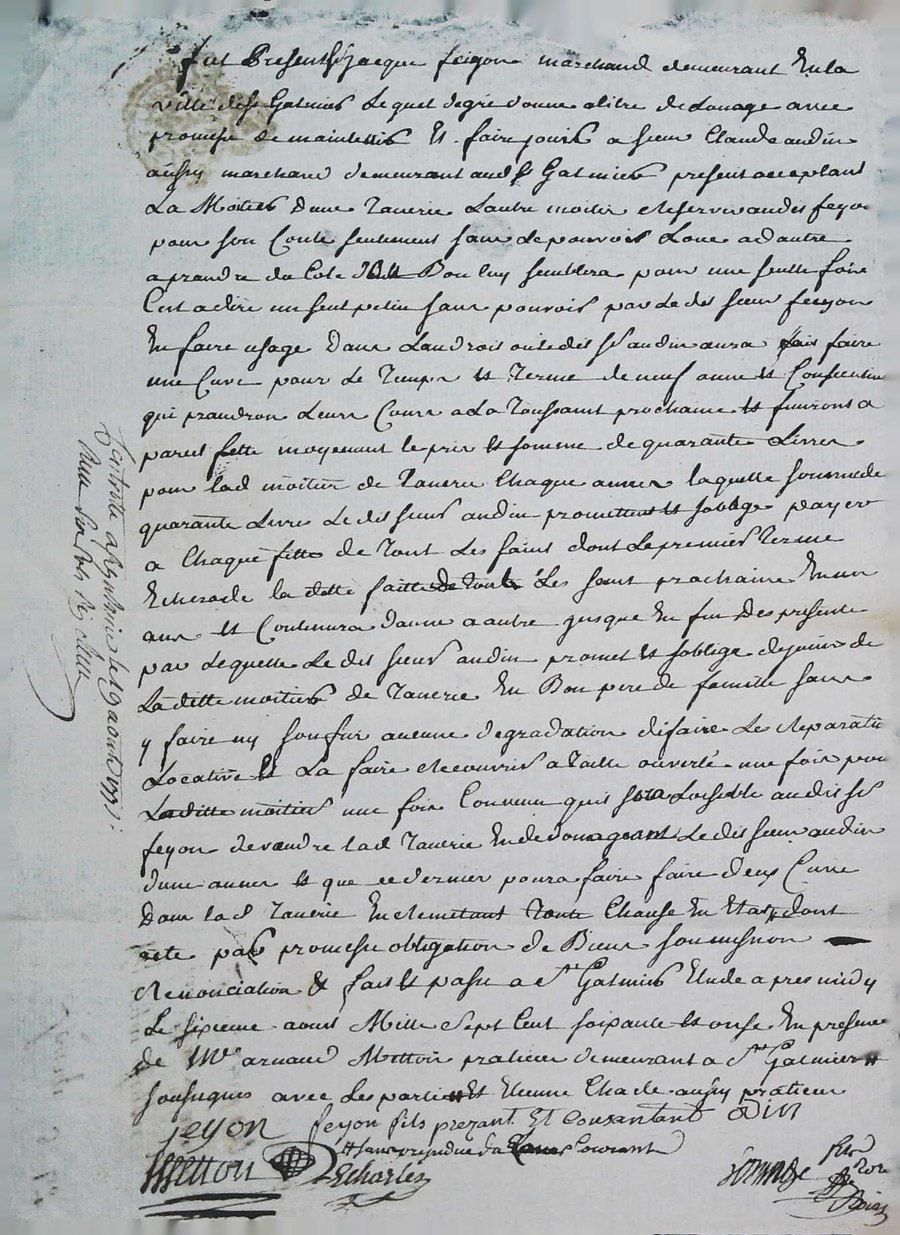 fut Present Sr jacque feÿon marchand demeurant En la
ville de st Galmier Lequel degré donne a titre de Louage avec
promesse de maintenir Et faire jouir a sieur Claude audin
aussy marchand demeurant aud st Galmier present acceptant
La Moitier Dune Tanerie Lautre moitier Reserve audit feÿon
pour son Conte seulement sans de pouvoir Loue a dautre
a prandre du Coté Bon luy semblera pour une seulle fois
Cest a dire un seul pelin sans pouvoir par Ledit sieur feyon
En faire usage Dans Landroit ou ledit Sr audin aura fait faire
une Cuve pour Le Temps Et Terme de neuf anne Et Consecutive
qui prandron Leurs Cours a La Toussaint prochaine Et finiront a
pareil fette moyenant le prix Et somme de quarante Livres
pour lad moitier de Tanerie Chaque annee laquelle somme de
quarante Livre Ledit sieur audin promettent Et soblige payer
a Chaque fette de Tout Les saint dont Le premier Terme
Echera de la ditte faitte de Toute Les saint prochaine En un
ans Et Continura danne a autre jusque En fin Des presente
par Lequelle Le dit sieur audin promet Et soblige de jouir de
La ditte moitier de Tanerie En Bon pere de famille sans
y faire ny soufrir aucune degradation difaire Le Reparation
Locative Et La faire Recouvrir a Taille ouverte une fois pour
La ditte moitier une fois Convenu quil sera Loisible audit Sr
feyon de vandre lad Tanerie En dedomageant Ledit sieur audin
dune annee Et que ce dernier poura faire faire deux Cuve
Dans lad Tanerie En Remetant Toute Chause En Etat dont
acte par promesse obligation de Biens soumission
Renonciation & fait Et passé a St Galmier Etude apres midy
Le sixieme aoust Mille Sept Cent soixante Et onse En presence
de Me arnaud Mettou praticien demeurant a St Galmier
soussignes avec Les partie Et Etienne Charle aussy praticien
feyon feyon fils prezant Et consantant odin
sans prejudice du Courant
Mettou Echarles
Controllé a St Galmier le 19 aoust 1771